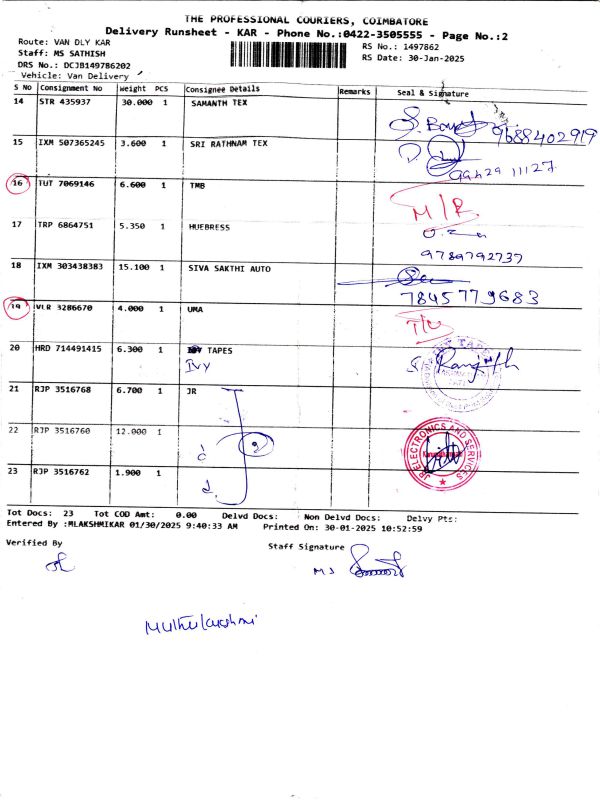 THE PROFESSIONAL COURIERS, COIMBATORE
Delivery Runsheet - KAR - Phone No.:0422-3505555 - Page No.:2
Route: VAN DLY KAR
Staff: MS SATHISH
DRS No.: DCJB149786202
Vehicle: Van Delivery
RS No.: 1497862
RS Date: 30-Jan-2025
S No Consignment No Weight PCS Consignee Details Remarks Seal & Signature
14 STR 435937 30.000 1 SAMANTH TEX
9688402919
15 IXM 507365245 3.600 1 SRI RATHNAM TEX
16 TUT 7069146 6.600 1 TMB M/R
17 TRP 6864751 5.350 1 HUEBRESS
9789792737
18 IXM 303438383 15.100 1 SIVA SAKTHI AUTO
7845779683
19 VLR 3286670 4.000 1 UMA
20 HRD 714491415 6.300 1 TAPES
IVY
Ranjith
21 RJP 3516768 6.700 1 JR
22 RJP 3516760 12.000 1
JR ELECTRONICS AND SERVICES
23 RJP 3516762 1.900 1
Tot Docs: 23 Tot COD Amt: 0.00 Delvd Docs: Non Delvd Docs: Delvy Pts:
Entered By :MLAKSHMIKAR 01/30/2025 9:40:33 AM Printed On: 30-01-2025 10:52:59
Verified By
Staff Signature
MS
Muthulakshmi